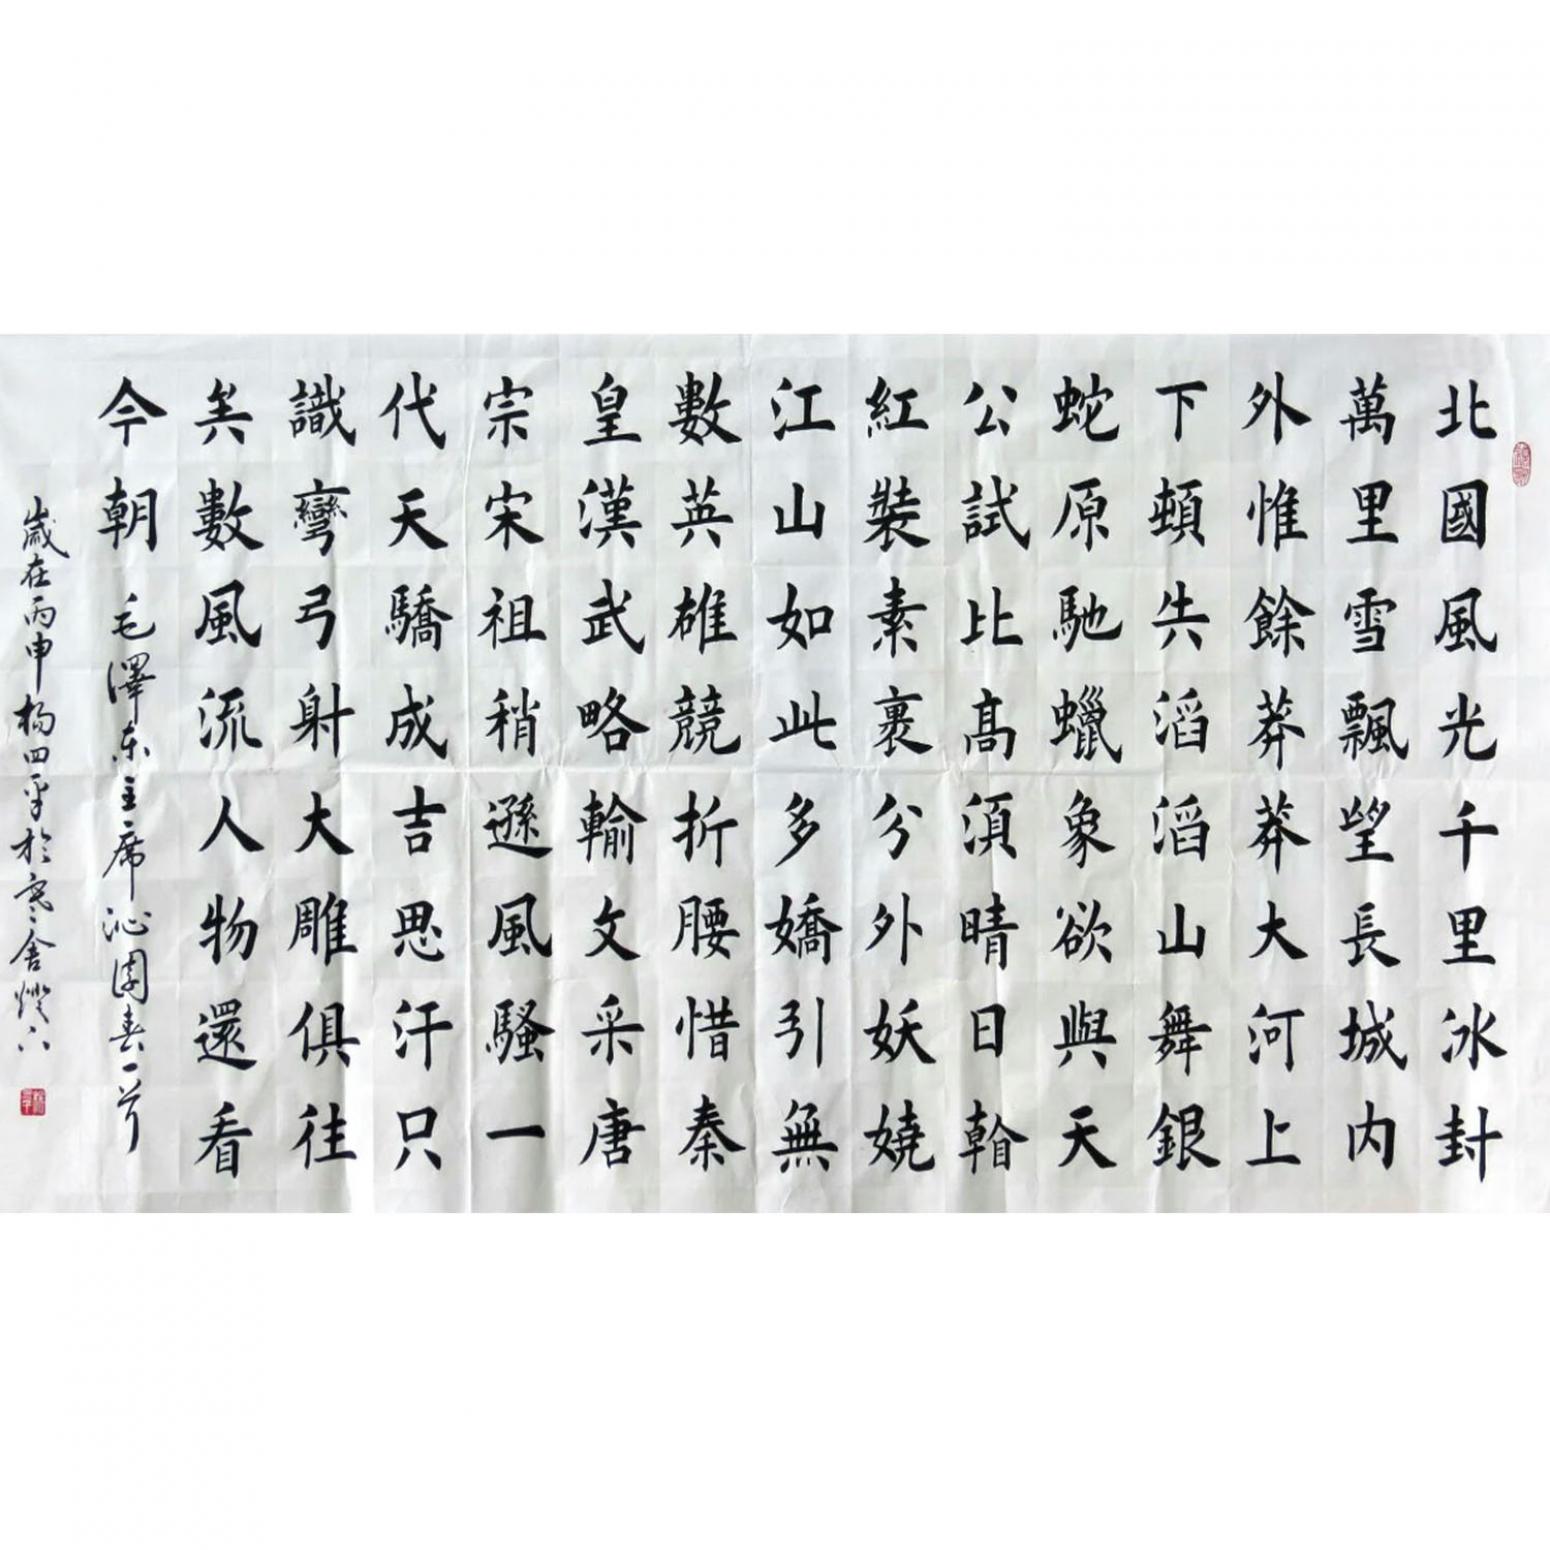 北國風光千里冰封
萬里雪飄望長城内
外惟餘莽莽大河上
下頓失滔滔山舞銀
蛇原馳蠟象欲與天
公試比髙須晴日看
紅裝素裹分外妖嬈
江山如此多嬌引無
數英雄競折腰惜秦
皇漢武略輸文采唐
宗宋祖稍遜風騷一
代天驕成吉思汗只
識彎弓射大雕俱往
矣數風流人物還看
今朝 毛澤东主席沁園春一首
歲在丙申楊四平於寒舍燈下